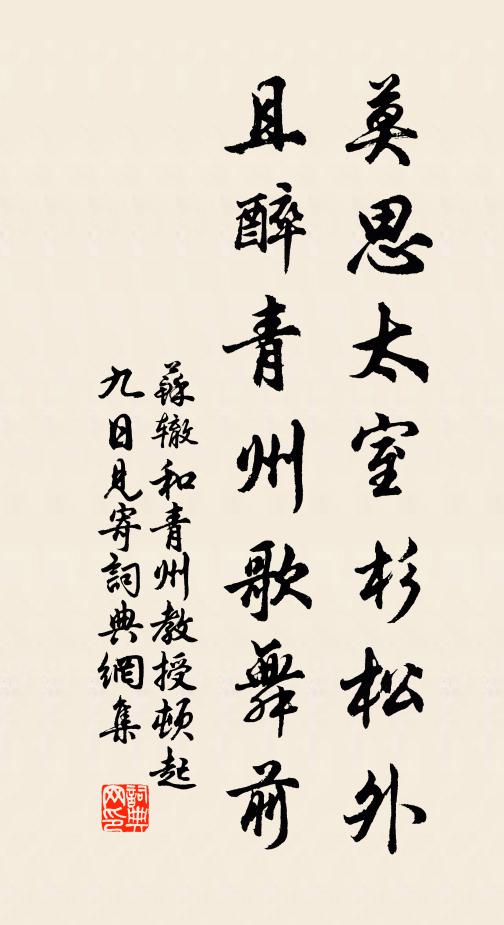 莫思太室杉松外
且醉青州歌舞前
蘇辙和青州教授頓起
九日見寄詞典網集
詞典网印